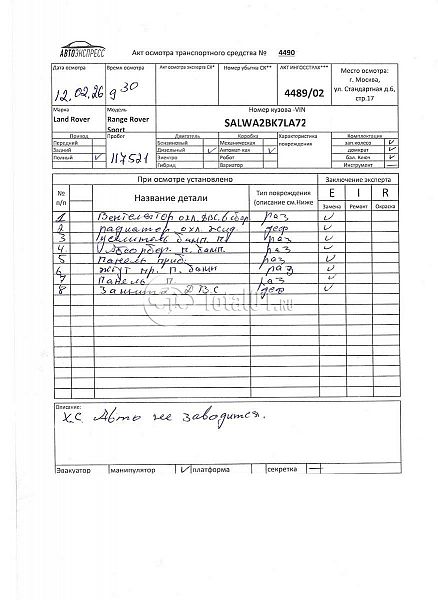 АВТОЭКСПРЕСС
Акт осмотра транспортного средства № 4490
Дата осмотра Время осмотра Акт осмотра эксперта СК* Номер убытка СК** АКТ ИНГОССТРАХ***
Место осмотра:
г. Москва,
ул. Стандартная д.6,
стр.17
12.02.26 9 30 4489/02
Марка Модель Номер кузова -VIN
Land Rover Range Rover Sport SALWA2BK7LA72
Привод Пробег Двигатель Коробка Характеристика повреждения Комплектация
Передний Бензиновый Механическая зап.колесо
Задний Дизельный Автомат-кая домкрат
Полный 117521 Электро Робот бал. Ключ
Гибрид Вариатор Инструмент —
При осмотре установлено Заключение эксперта
№ п/п Название детали Тип повреждения (описание см.Ниже E I R
Замена Ремонт Окраска
1 Вентелятор охл. ДВС в сбор раз
2 радиатор охл. жид деф
3 Усилитель бамп. п раз
4 Абсорбер п. бамп. раз
5 Панель приб. раз
6 жгут пр. п. бамп раз
7 Панель раз
8 Защита ДВС деф
TOTAL01.RU
Описание:
х.с. Авто не заводится.
Эвакуатор манипулятор платформа секретка —